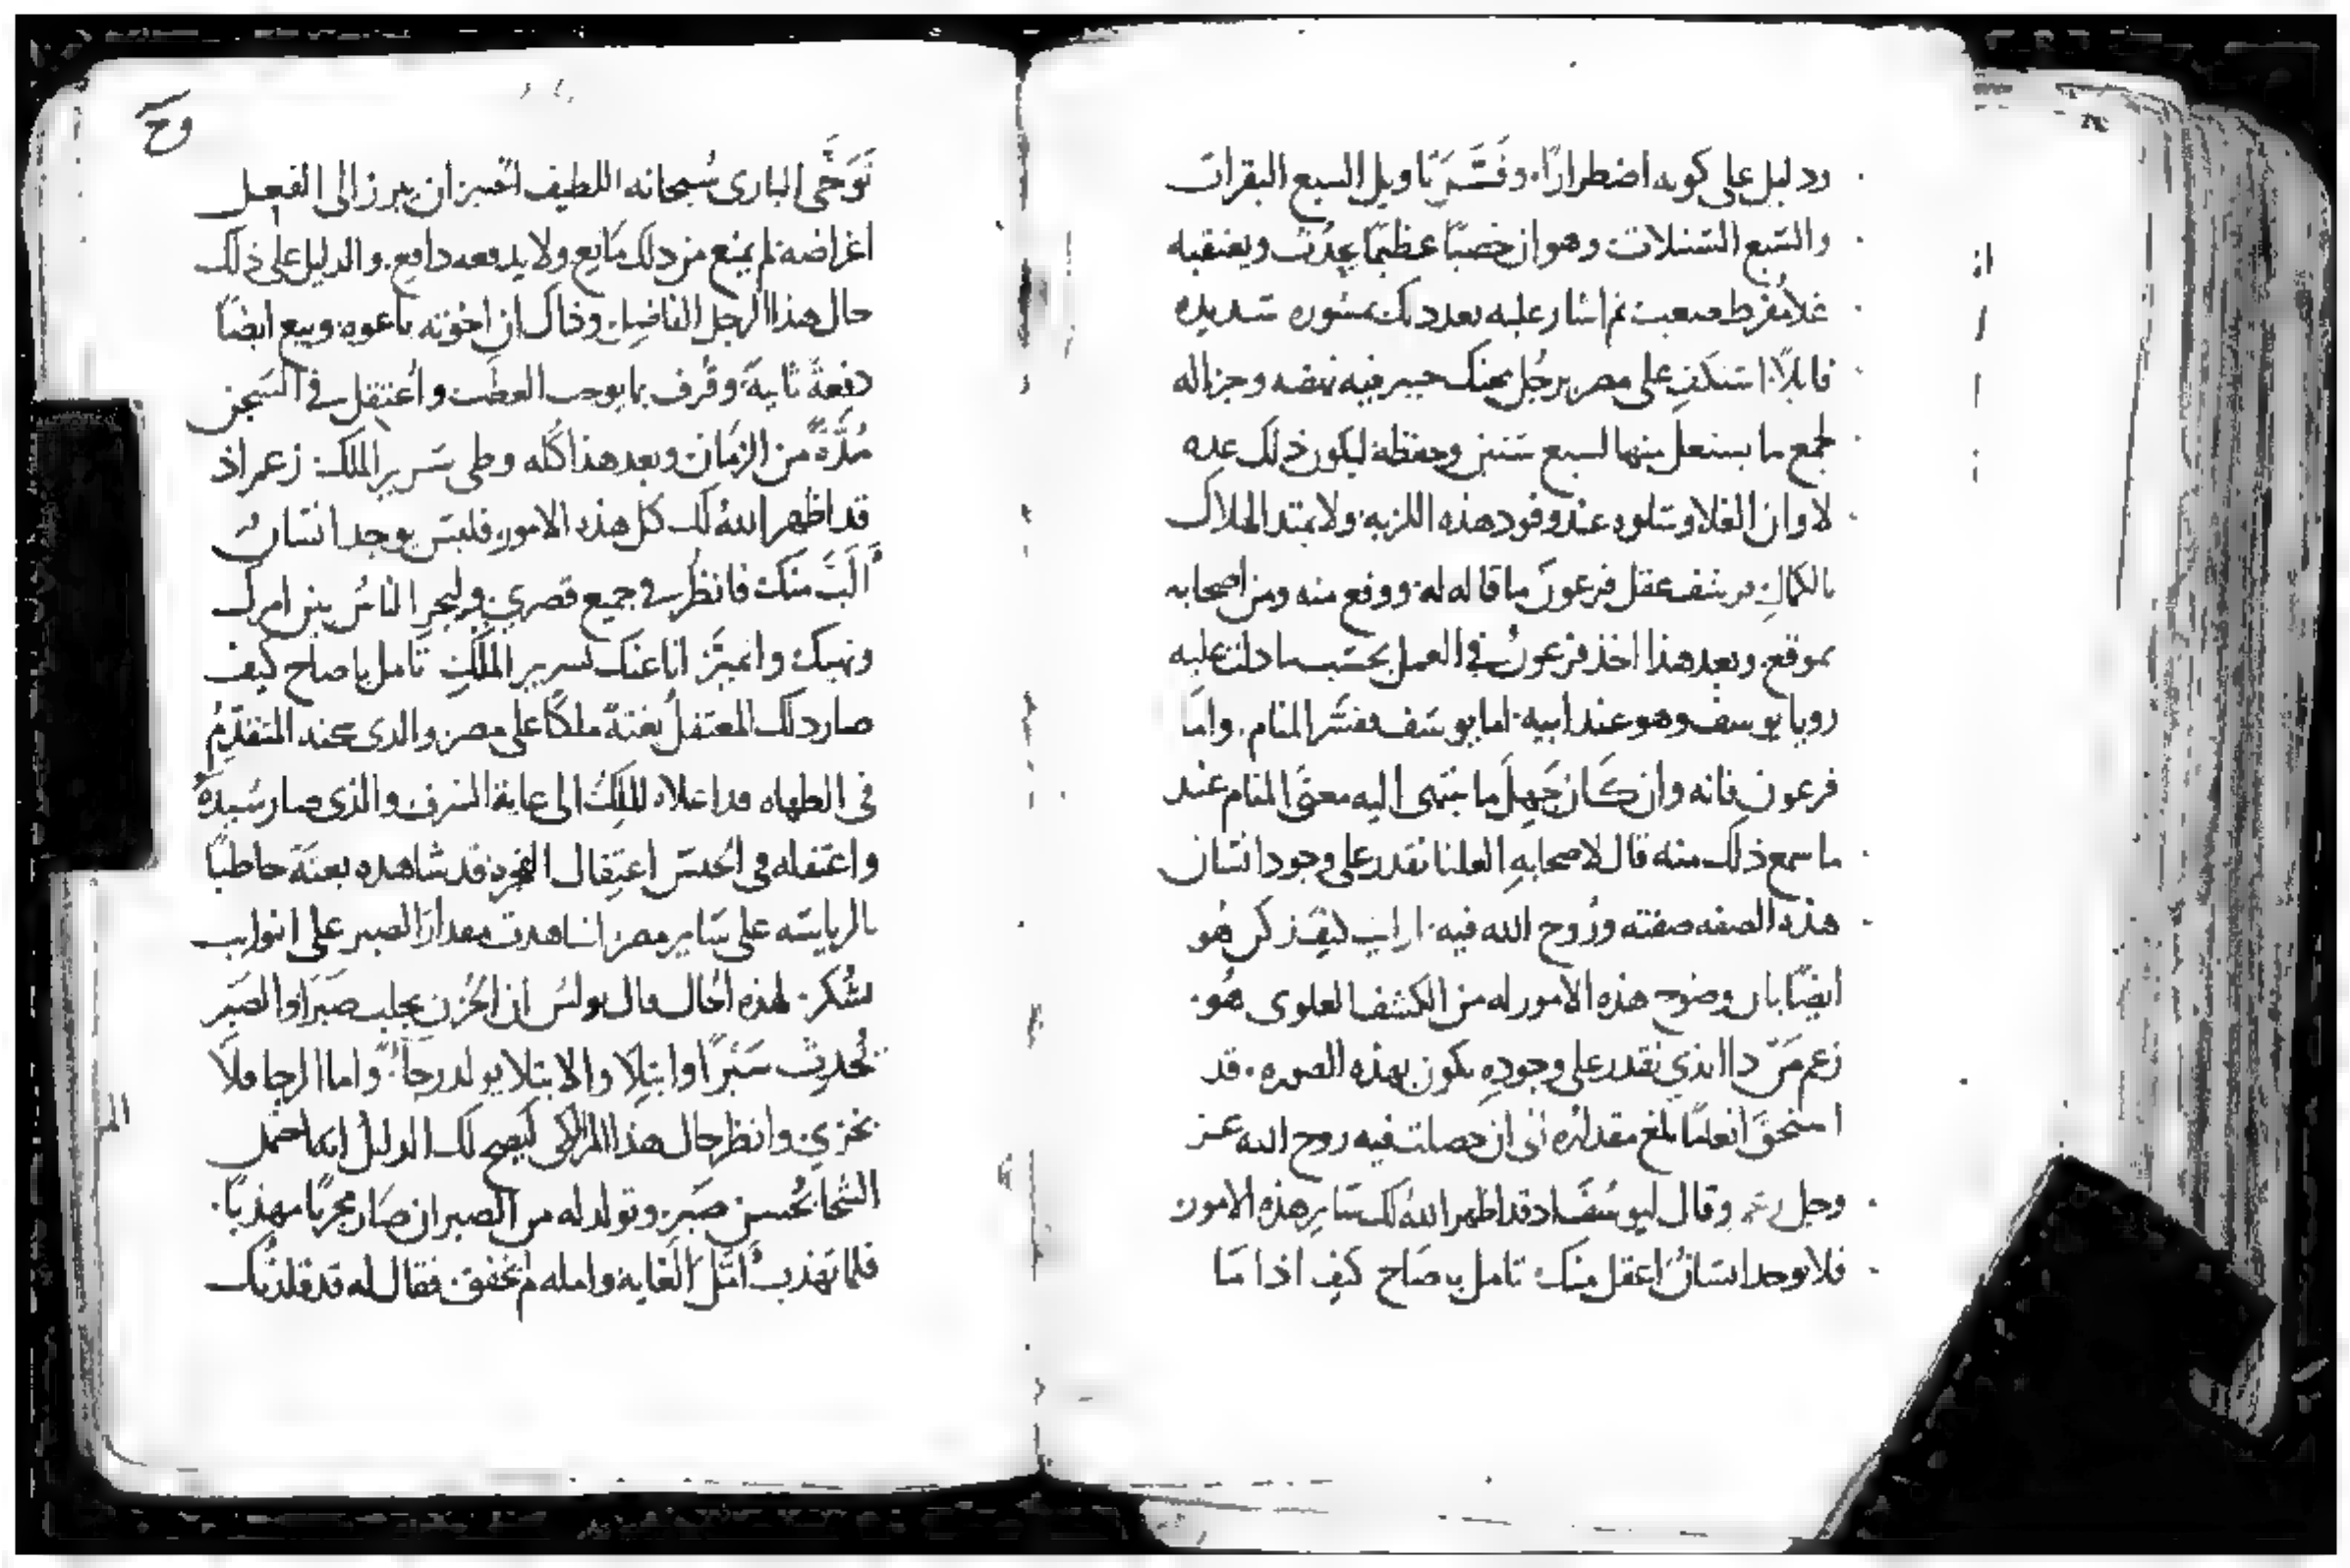 ودليل على كونه اضطرارًا. وفَسَّر تاويل السبع البقرات
والسّبع السّنبلات وهو ان خصبًا عظيمًا يحدُث ويعتقبه
غلا مُفرط صعب ثم اشار عليه بعد ذلك بمشوره سَديده
قايلاً استكفِ على مصر برجُل محنك خبير فيه نهضه وجزاله
لجمع ما يستغل منها لسبع سَنين وحفظه ليكون ذلك عده
لاوان الغلا وسلوه عند وفود هذه اللزبه ولا يمتد الهلاك
بالكمالِ عقل فرعونَ ما قاله له ووقع منه ومن اصحابه
بموقع وبعد هذا اخذ فرعونُ في العمل بحسَب ما دلت عليه
رويا يوسف وهو عند ابيه اما يوسَف ففسّر المنام. وامَا
فرعون فانه وان كَان جَهِلَ ما ينتهى اليه معنَى المنام عنْد
ما سمع ذلك منه قال لاصحابهِ العلنا نقدر على وجود انسَان
هذه الصفه صفته ورُوح الله فيه. ارايت كيف زكن هُو
ايضًا بان وضوح هذه الامور له من الكشف العلوى هُو.
زعم مَن ذا الذي نقدر على وجودِه يكون بهذه الصوره. قد
استحقَ انعامًا بلغ مقدارُه الى ان حصلت فيه روح الله عز
وجل وقال ليوسُفَ اذ قد اظهر اللهُ لك سَاير هذه الامور
فلا يوجد انسَانُ اعقل منك تامل يا صَاح كيف اذا مَا
وح
تَوَخَّى البارى سُبحانه اللطيف الخبير ان يبرز الى الفعل
اغراضه لم يمنع من ذلك مَانع ولا يدفعه دافع. والدليل على ذلك
حال هذا الرجل الفاضل. وذاك ان اخوته باعوه وبيع ايضًا
دفعةً ثانيةً وقُرف بما يوجب العطب واعُتقل في السَجن
مُدَّةً من الزمَان وبعد هذا كُله وطى سَرير المُلك زعم اذ
قد اظهر اللهُ لك كل هذه الامور فليسَ يوجد انسَانُ
أَلَبَّ منك فانظُر في جميع قصري وليجرِ الناسُ بين امرك
ونهيك وانميز انا عنك بسرير المُلكِ تَامل يا صَاح كيف
صار ذلك المعتقلُ بغتة ملكًا على مصر والذى عند المتقدّمُ
في الطهاه قد اعلاه المَلِكُ الى غاية الشرف والذى صار سَيدهُ
واعتقله في الحبسَ اعتقال قد شاهده بغتة حاطبًا
بالرياسَه على سَاير مصر اشاهدت مقدارَ الصبر على النوايب
بشُكر. لهذه الحَال قال بولسُ ان الحُزن يجلب صَبرًا والصَبر
يُحدِث سَبْرًا وابتلا والابتلا يولد رجاً. واما الرجا فلا
يخزي. وانظر حال هذا المزكى كيصح لك الدليل انه احتمل
الشحاَ بحُسن صَبر. وتولد له من الصبر ان صَار مجربًا مهذبًا.
فلما تهذب امَّلَ الغايه وامله لم يخفق. فقال له قد قلدتُك